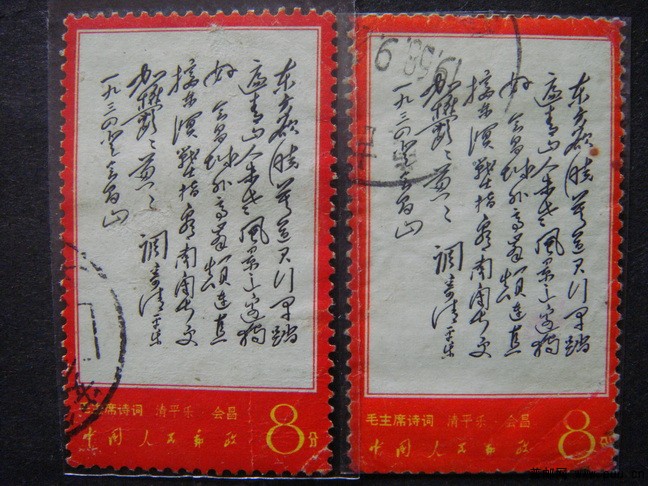 东方欲晓莫道君行早踏
遍青山人未老风景这边独
好 会昌城外高峰颠连直
接东溟战士指看南粤更
加欝〻葱〻 调寄清平乐
一九三四登会昌山
毛主席诗词 清平乐 会昌
中国人民邮政 8分
东方欲晓莫道君行早踏
遍青山人未老风景这边独
好 会昌城外高峰颠连直
接东溟战士指看南粤更
加欝〻葱〻 调寄清平乐
一九三四登会昌山
毛主席诗词 清平乐 会昌
中国人民邮政 8分